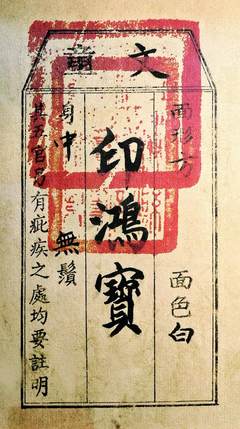 文童
面形方 面色白
印鴻寶
身中 無鬚
其五官另有疵疾之處均要註明